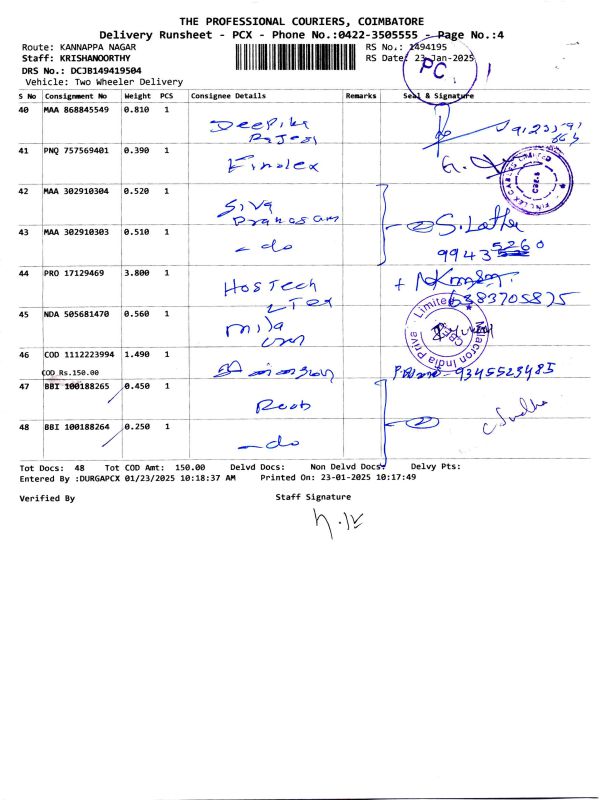 THE PROFESSIONAL COURIERS, COIMBATORE
Delivery Runsheet - PCX - Phone No.:0422-3505555 - Page No.:4
Route: KANNAPPA NAGAR RS No.: 1494195
Staff: KRISHANOORTHY RS Date: 23-Jan-2025
PC
DRS No.: DCJB149419504
Vehicle: Two Wheeler Delivery
S No Consignment No Weight PCS Consignee Details Remarks Seal & Signature
40 MAA 868845549 0.810 1 Deepika
41 PNQ 757569401 0.390 1 Finolex
FINOLEX CABLES LIMITED
42 MAA 302910304 0.520 1 Siva S. Latha
43 MAA 302910303 0.510 1 - do 99435260
44 PRO 17129469 3.800 1 Hostech 6383705875
45 NDA 505681470 0.560 1 mila
Milacron India Private Limited
CBE
46 COD 1112223994 1.490 1 9345523485
COD Rs.150.00
47 BBI 100188265 0.450 1
48 BBI 100188264 0.250 1 - do
Tot Docs: 48 Tot COD Amt: 150.00 Delvd Docs: Non Delvd Docs: Delvy Pts:
Entered By :DURGAPCX 01/23/2025 10:18:37 AM Printed On: 23-01-2025 10:17:49
Verified By Staff Signature